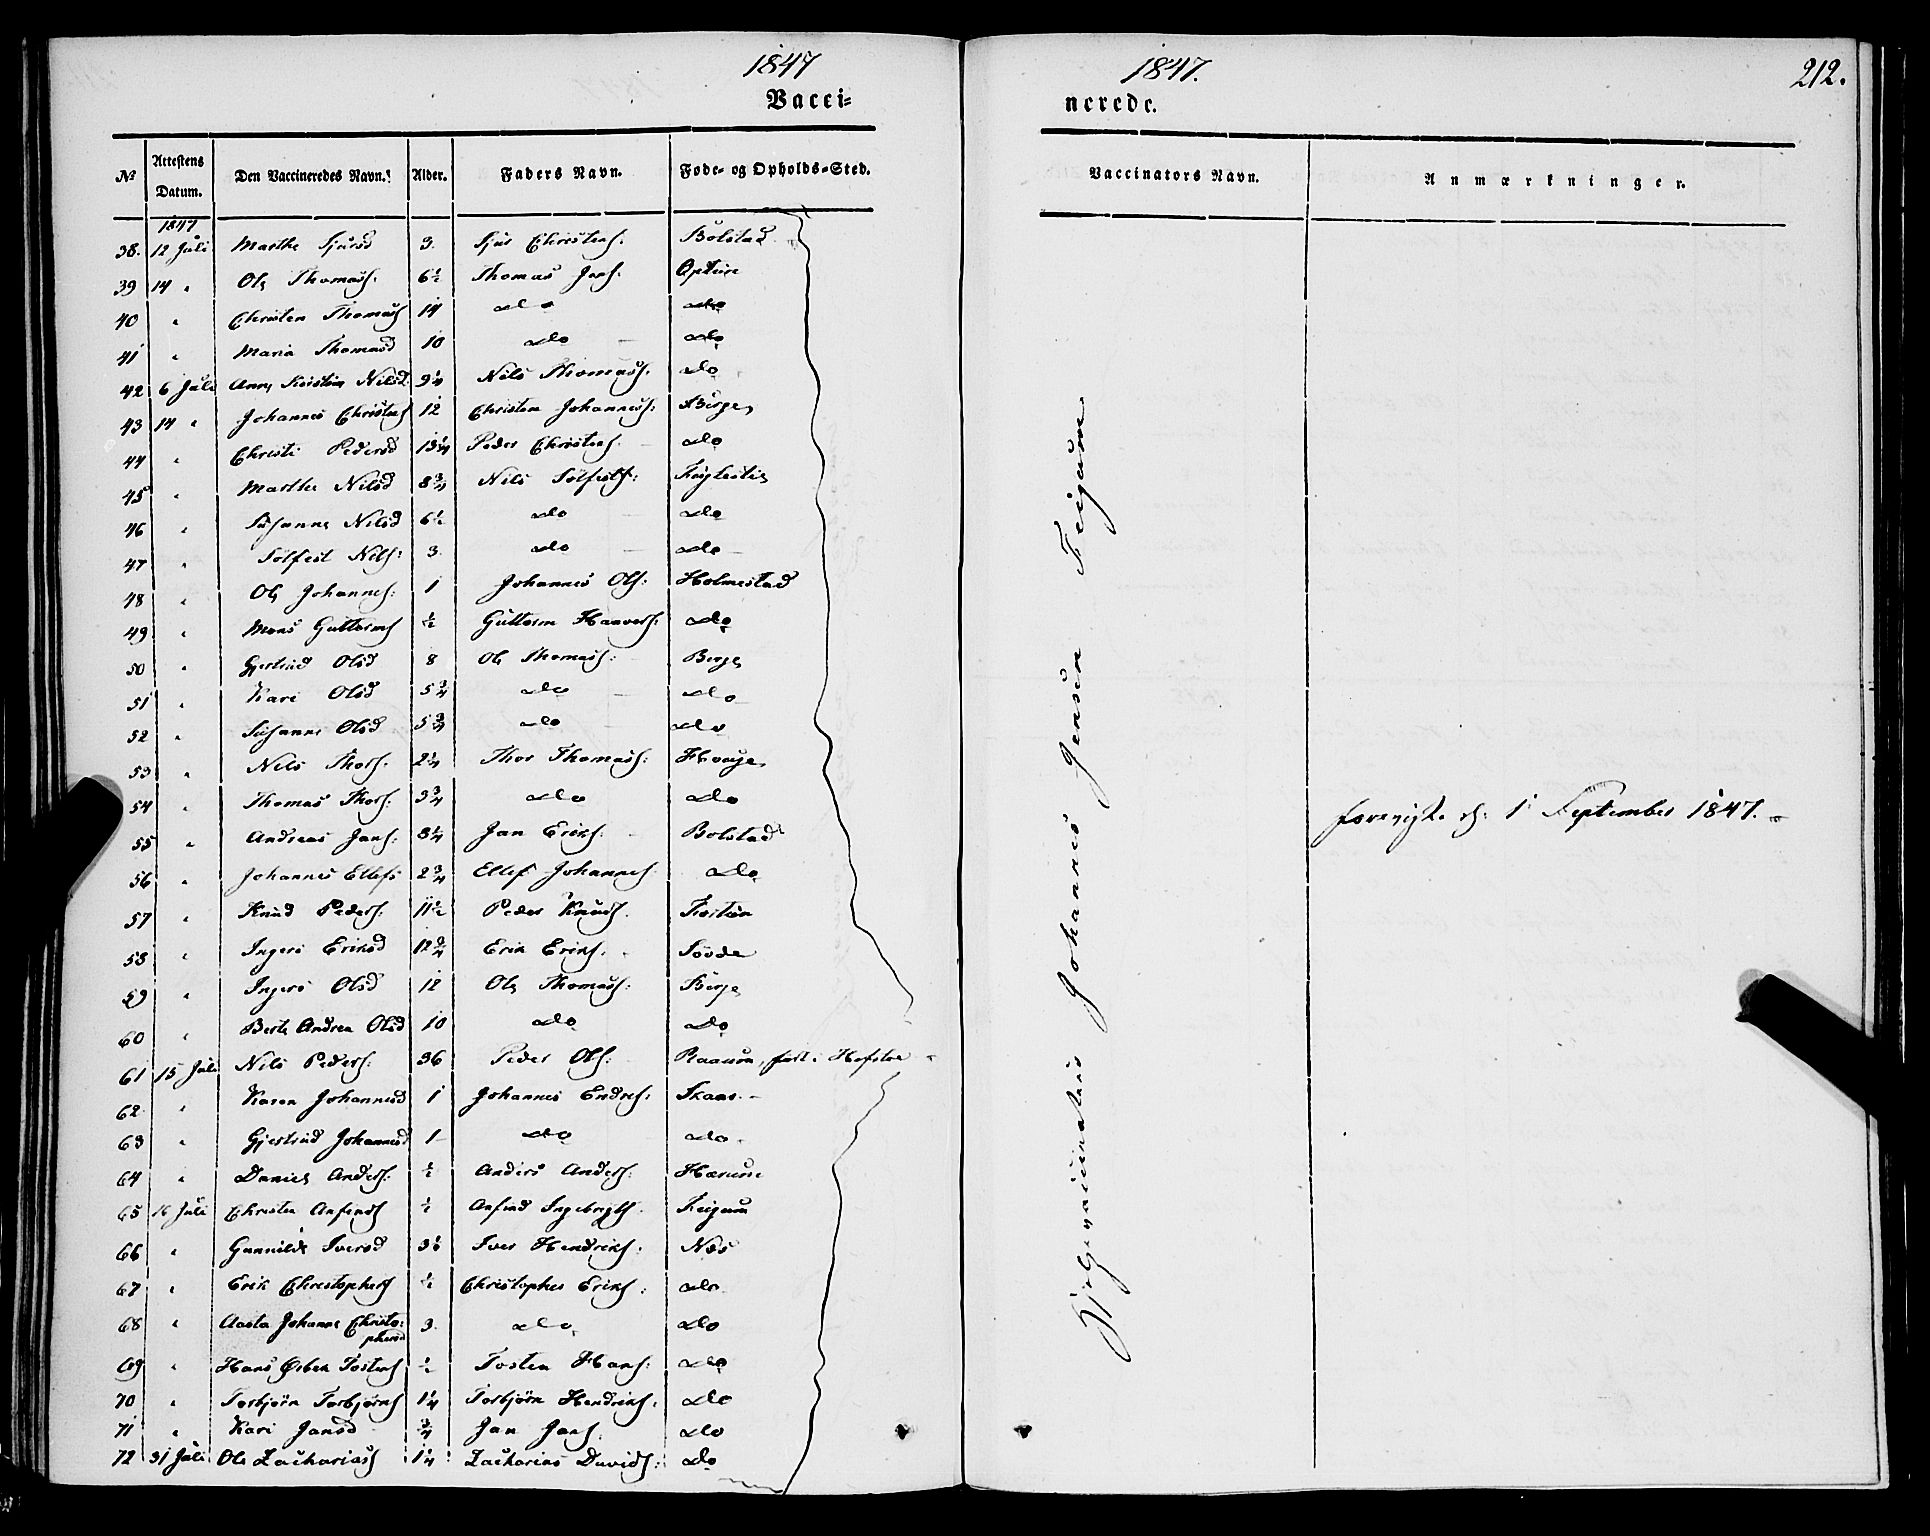 1847
Vacci=
№ Attestens Datum. Den Vaccineredes Navn. Alder. Faders Navn. Føde- og Opholds-Sted.
1847
38. 12 Juli Marthe Sjursd 3. Sjur Christens: Bolstad
39 14 " Ole Thomass: 6½ Thomas Jans: Optun
40 " Christen Thomass 14 do do
41 " Maria Thomasd 10 do do
42 6 Juli Anne Kirstine Nilsd. 9¼ Nils Thomass: do
43 14 " Johannes Christens 12 Christen Johanness: Berge
44 " Christi Pedersd 13¼ Peder Christens. do
45 " Marthe Nilsd 8¾ Nils Solfests:
46 " Susanne Nilsd 6½ do do
47 " Solfest Nils: 3 do do
48 " Ole Johannes: 1 Johannes Ols: Holmestad
49 " Mons Guttorms ½ Guttorm Haavers: do
50 " Gjertrud Olsd 8 Ole Thomass: Berge
51 " Kari Olsd 5¾ do do
52 " Susanne Olsd 5¾ do do
53 " Nils Thors: 2¼ Thor Thomass: Houge
54 " Thomas Thors: 3¾ do do
55 " Andreas Jans: 8¼ Jan Eriks: Bolstad
56 " Johannes Ellefs 2¾ Ellef Johannes do
57 " Knud Peders: 11½ Peder Knuds. Fortun
58 " Ingeri Eriksd 12¾ Erik Eriks. Søvde
59 " Ingeri Olsd 12 Ole Thomass: Berge
60 " Berte Andrea Olsd 10 do do
61 15 Juli Nils Peders: 36 Peder Ols: Raaum,
62 " Karen Johannesd 1 Johannes Endres: Skaar
63 " Gjertrud Johannesd 1 do do
64 " Daniel Anders: ½ Anders Anders: Hærum
65 16 Juli Christen Anfinds ½ Anfind Ingebrigts. Feigum
66 " Gunnilde Iversd 3½ Iver Hendriks: Næs
67 " Erik Christophers ½ Christopher Eriks: do
68 " Aasta Johanne Christo=
phersd 3. do do
69 " Hans Esben Tostens ½ Tosten Hans: do
70 " Torbjørn Torbjørns 1¼ Torbjørn Hendriks: do
71 " Kari Jansd ¾ Jan Jans: do
72 31 Juli Ole Zachariass 1¼ Zacharias Davids: do
1847.
212.
nerede.
Vaccinators Navn. Anmærkninger.
Hjelpevaccinateur Johannes Jensen Feigum
1 September 1847.